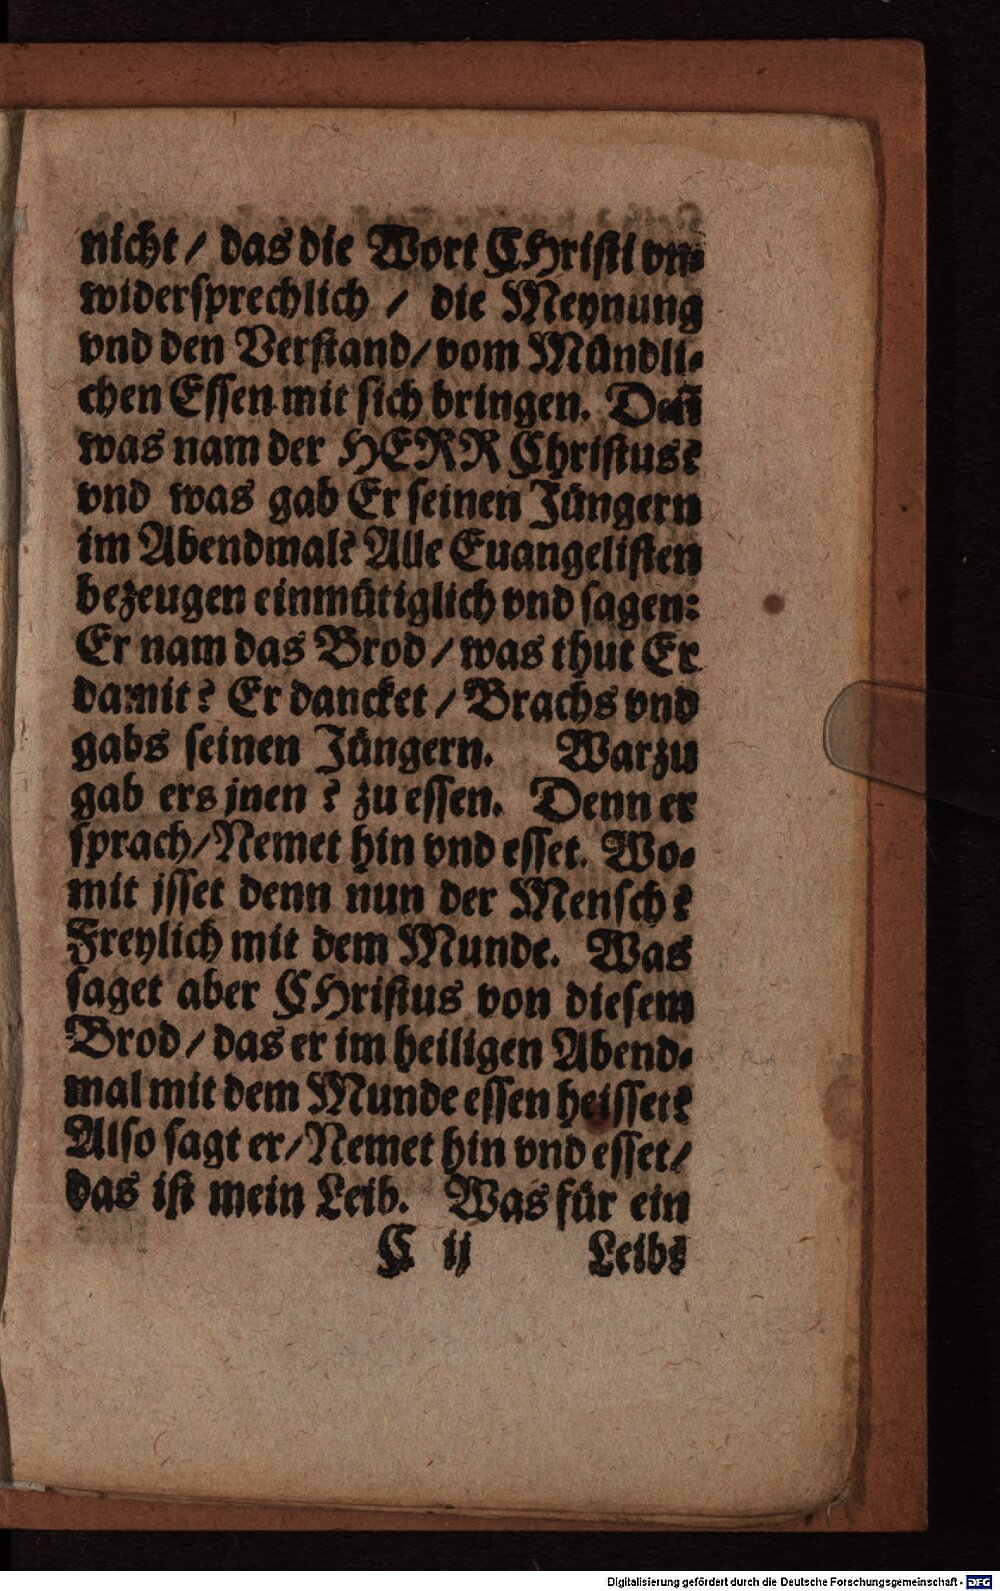 nicht / das die Wort CHristi vn-
widersprechlich / die Meynung
vnd den Verstand / vom Mündli-
chen Essen mit sich bringen. Deñ
was nam der HERR Christus?
vnd was gab Er seinen Jüngern
im Abendmal? Alle Euangelisten
bezeugen einmütiglich vnd sagen:
Er nam das Brod / was thut Er
damit? Er dancket / Brachs vnd
gabs seinen Jüngern. Warzu
gab ers jnen? zu essen. Denn er
sprach / Nemet hin vnd esset. Wo-
mit jsset denn nun der Mensch?
Freylich mit dem Munde. Was
saget aber CHristus von diesem
Brod / das er im heiligen Abend-
mal mit dem Munde essen heisset?
Also sagt er / Nemet hin vnd esset /
das ist mein Leib. Was für ein
C ij Leibs
Digitalisierung gefördert durch die Deutsche Forschungsgemeinschaft - DFG